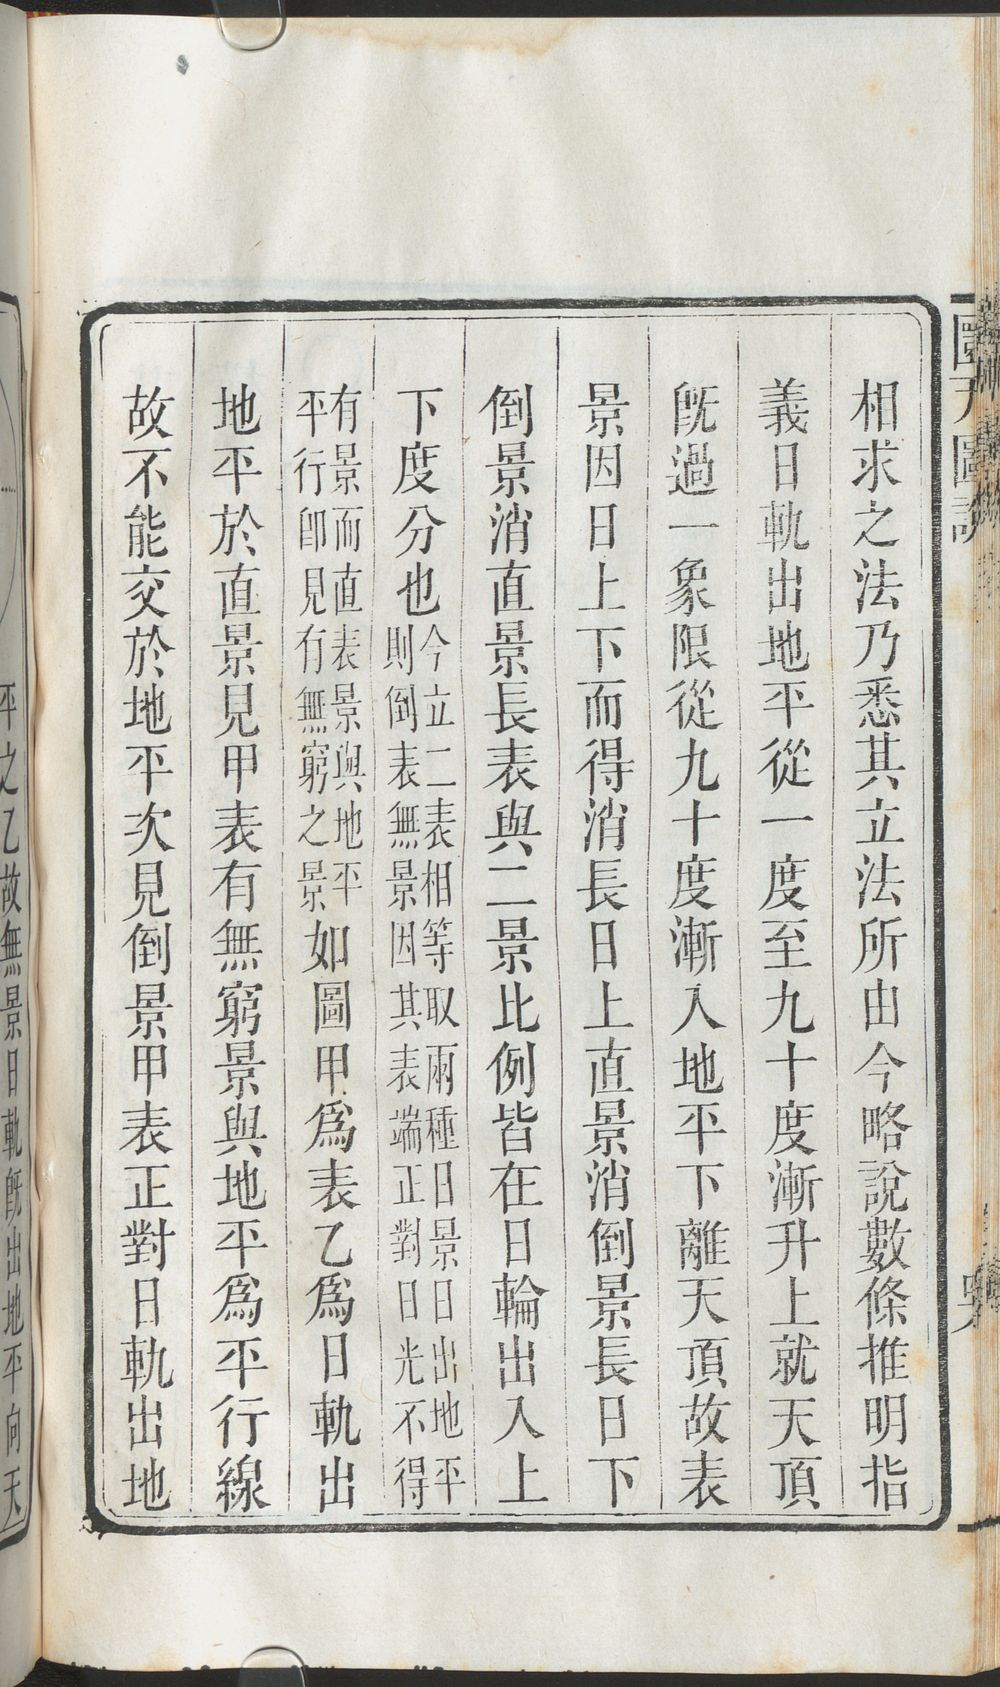 相求之法乃悉其立法所由今略說數條推明指
義日軌出地平從一度至九十度漸升上就天頂
旣過一象限從九十度漸入地平下離天頂故表
景因日上下而得消長日上直景消倒景長日下
倒景消直景長表與二景比例皆在日輪出入上
下度分也今立二表相等取兩種日景日出地平
則倒表無景因其表端正對日光不得
有景而直表景與地平
平行卽見有無窮之景如圖甲爲表乙爲日軌出
地平於直景見甲表有無窮景與地平爲平行線
故不能交於地平次見倒景甲表正對日軌出地
平之乙故無景日軌旣出地平向天
圖說